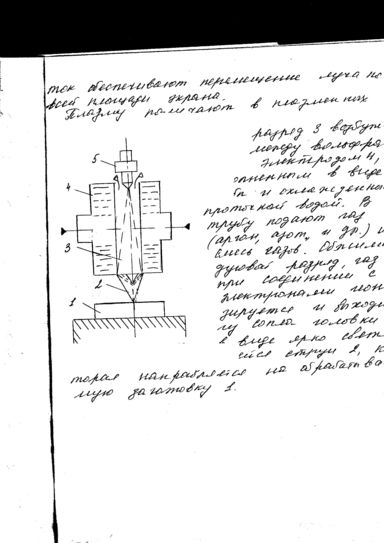 ток обеспечивают перемещение луча по
всей площади экрана.
Плазму получают в плазменных
разряд 3 возбуж
между вольфра
5
электродом 4,
4
лненном в виде
и охлажденной
проточной водой. В
трубу подают газ
(аргон, азот и др.) и
3
смесь газов. Обжима
дуговой разряд, газ
2
при соединении с
1
электронами иони
зируется и выходи
сопла головки
в виде ярко светя
йся струи 2, ко
торая направляется на обрабатыва
мую заготовку 1.